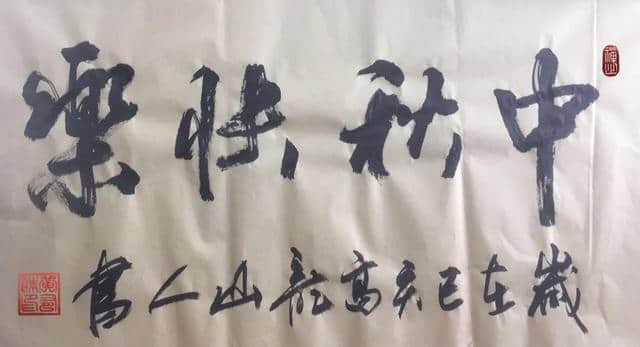 中秋快樂
歲在己亥高龍山人書